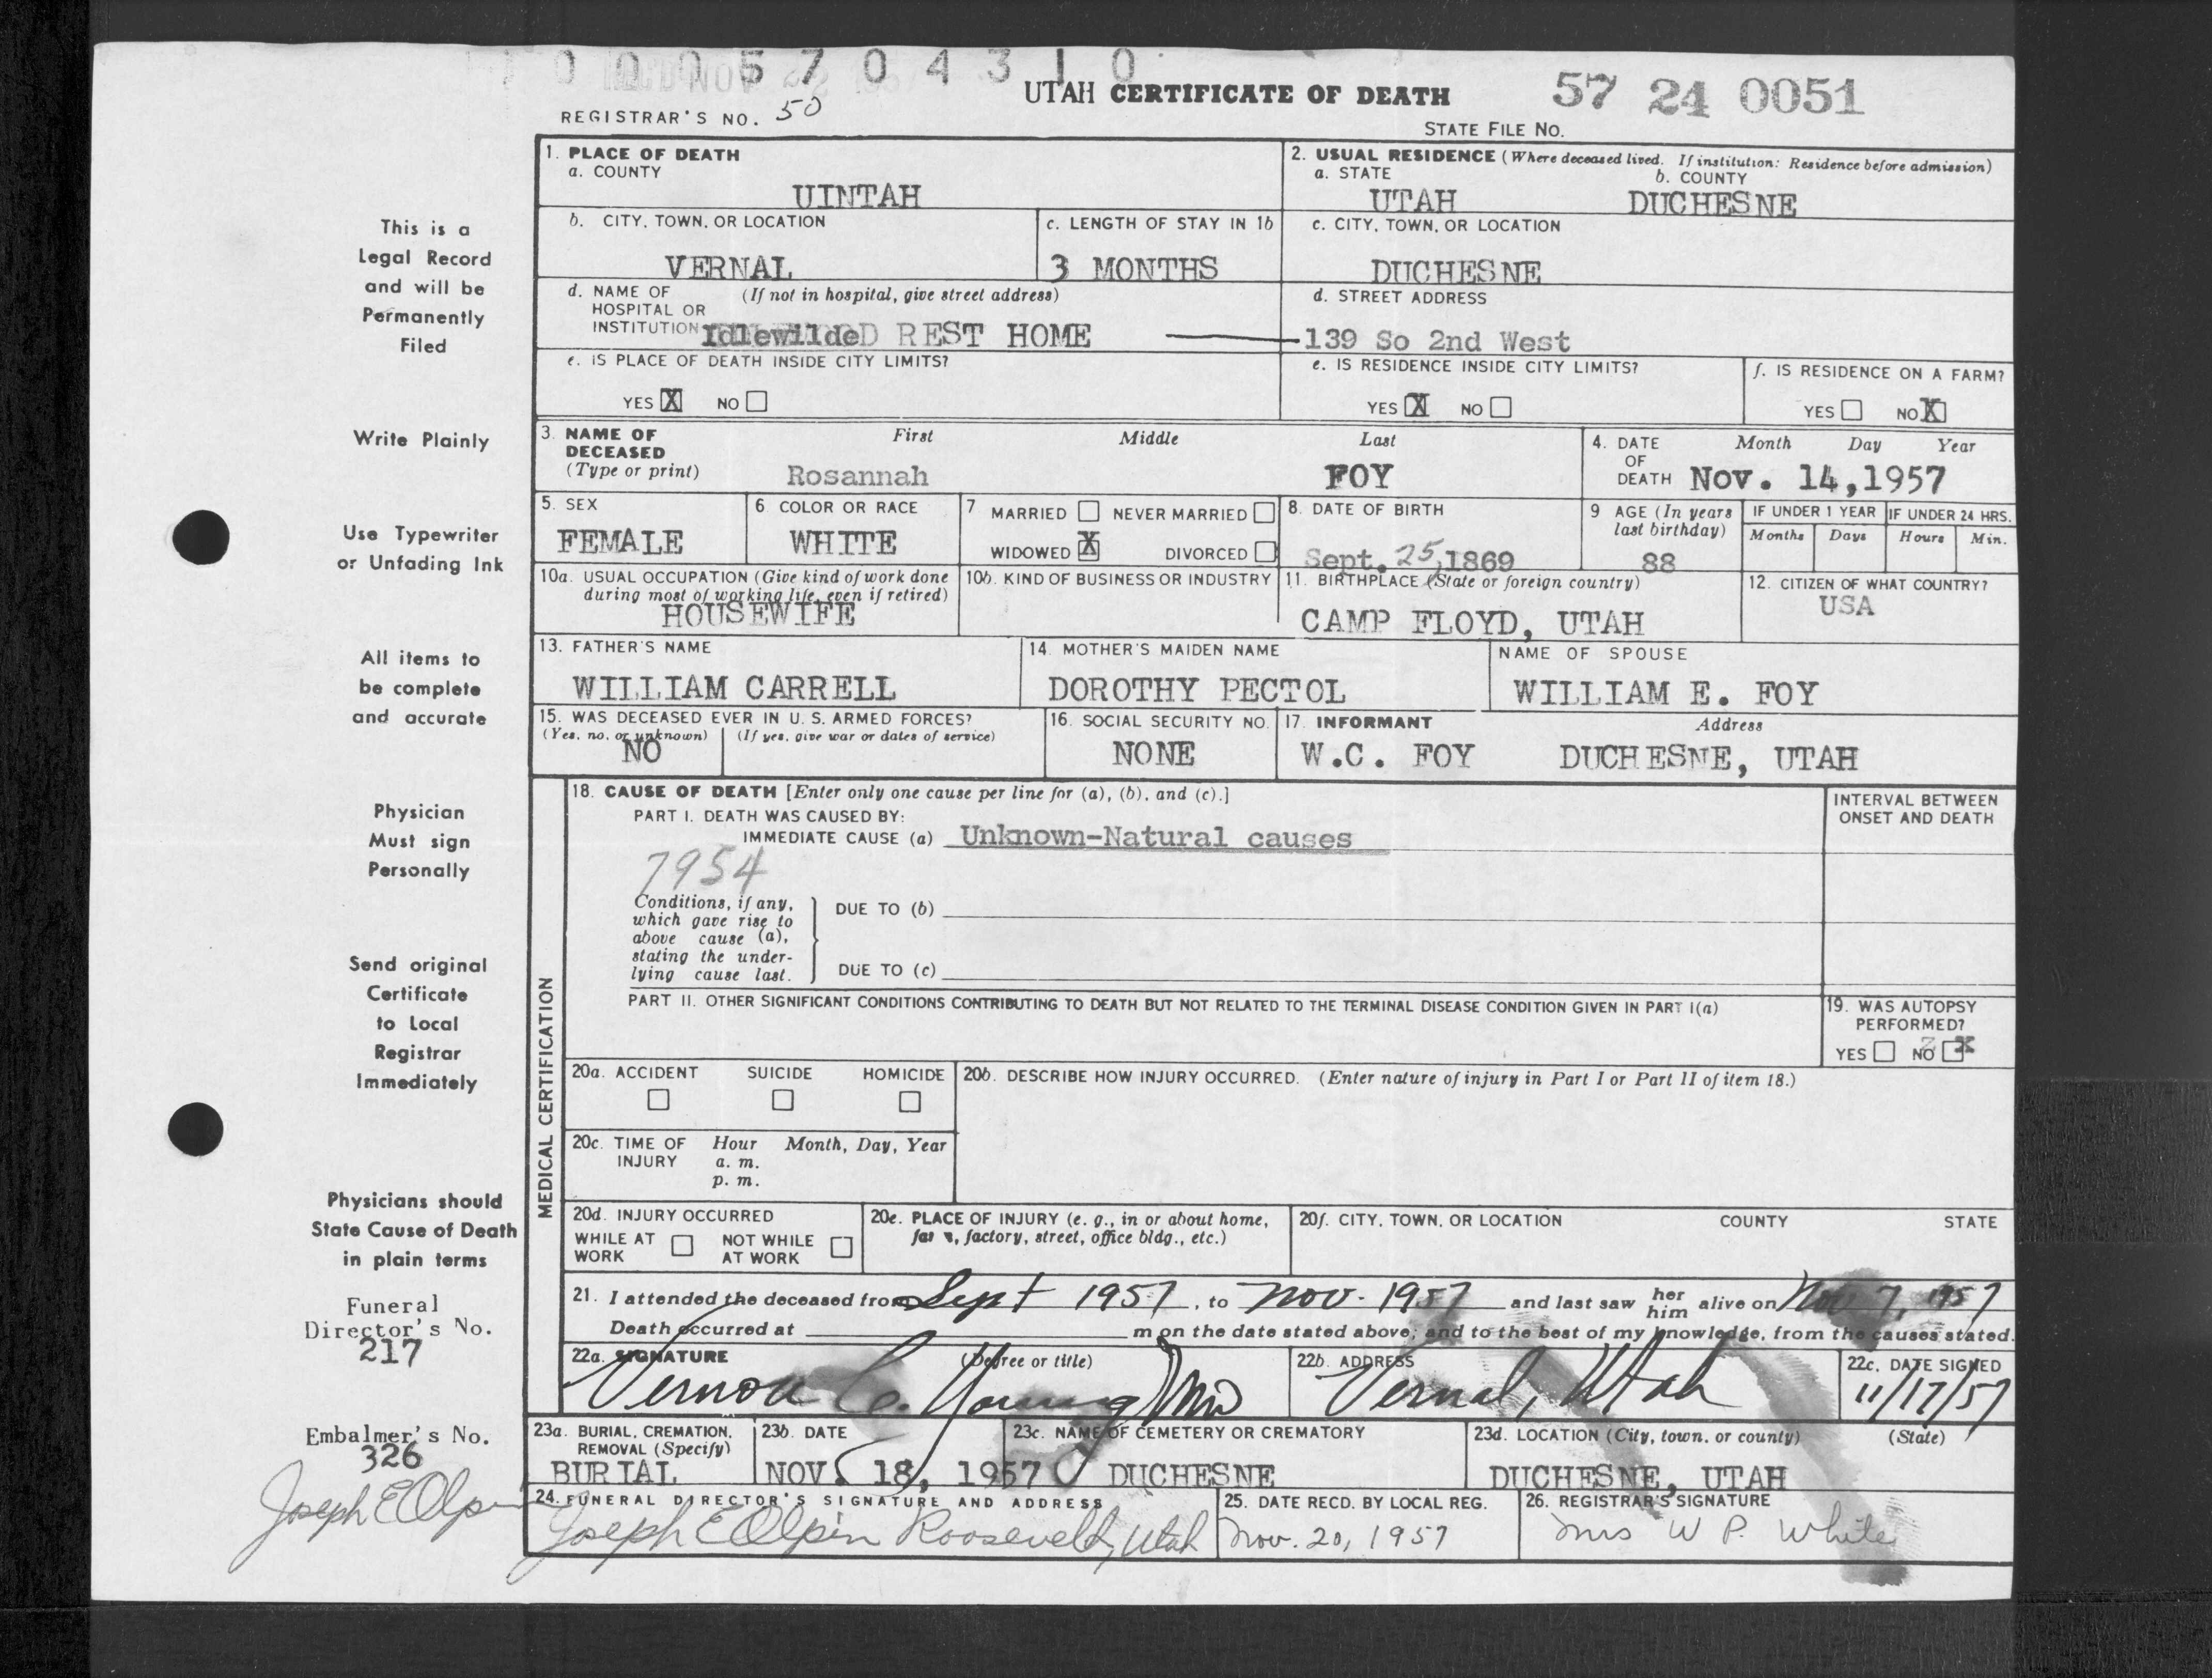 0 0 0 5 7 0 4 3 1 0
UTAH CERTIFICATE OF DEATH
57 24 0051
REGISTRAR'S NO. 50
STATE FILE NO.
This is a
Legal Record
and will be
Permanently
Filed
Write Plainly
Use Typewriter
or Unfading Ink
All items to
be complete
and accurate
Physician
Must sign
Personally
Send original
Certificate
to Local
Registrar
Immediately
Physicians should
State Cause of Death
in plain terms
Funeral
Director's No.
217
Embalmer's No.
326
Joseph E Olpin
1. PLACE OF DEATH
a. COUNTY
UINTAH
2. USUAL RESIDENCE (Where deceased lived. If institution: Residence before admission)
a. STATE b. COUNTY
UTAH DUCHESNE
b. CITY, TOWN, OR LOCATION
VERNAL
c. LENGTH OF STAY IN 1b
3 MONTHS
c. CITY, TOWN, OR LOCATION
DUCHESNE
d. NAME OF (If not in hospital, give street address)
HOSPITAL OR
INSTITUTION Idlewilde REST HOME
d. STREET ADDRESS
139 So 2nd West
e. IS PLACE OF DEATH INSIDE CITY LIMITS?
YES X NO
e. IS RESIDENCE INSIDE CITY LIMITS?
YES X NO
f. IS RESIDENCE ON A FARM?
YES NO X
3. NAME OF First Middle Last
DECEASED
(Type or print) Rosannah FOY
4. DATE Month Day Year
OF
DEATH Nov. 14,1957
5. SEX
FEMALE
6 COLOR OR RACE
WHITE
7 MARRIED NEVER MARRIED
WIDOWED X DIVORCED
8. DATE OF BIRTH
Sept. 25,1869
9 AGE (In years
last birthday)
88
IF UNDER 1 YEAR
Months Days
IF UNDER 24 HRS.
Hours Min.
10a. USUAL OCCUPATION (Give kind of work done
during most of working life, even if retired)
HOUSEWIFE
10b. KIND OF BUSINESS OR INDUSTRY
11. BIRTHPLACE (State or foreign country)
CAMP FLOYD, UTAH
12. CITIZEN OF WHAT COUNTRY?
USA
13. FATHER'S NAME
WILLIAM CARRELL
14. MOTHER'S MAIDEN NAME
DOROTHY PECTOL
NAME OF SPOUSE
WILLIAM E. FOY
15. WAS DECEASED EVER IN U. S. ARMED FORCES?
(Yes, no, or unknown) (If yes, give war or dates of service)
NO
16. SOCIAL SECURITY NO.
NONE
17. INFORMANT Address
W.C. FOY DUCHESNE, UTAH
MEDICAL CERTIFICATION
18. CAUSE OF DEATH [Enter only one cause per line for (a), (b), and (c).]
PART I. DEATH WAS CAUSED BY:
IMMEDIATE CAUSE (a) Unknown-Natural causes
INTERVAL BETWEEN
ONSET AND DEATH
7954
Conditions, if any,
which gave rise to
above cause (a),
stating the under-
lying cause last.
DUE TO (b)
DUE TO (c)
PART II. OTHER SIGNIFICANT CONDITIONS CONTRIBUTING TO DEATH BUT NOT RELATED TO THE TERMINAL DISEASE CONDITION GIVEN IN PART I(a)
19. WAS AUTOPSY
PERFORMED?
YES NO X
20a. ACCIDENT SUICIDE HOMICIDE
20b. DESCRIBE HOW INJURY OCCURRED. (Enter nature of injury in Part I or Part II of item 18.)
20c. TIME OF Hour Month, Day, Year
INJURY a. m.
p. m.
20d. INJURY OCCURRED
WHILE AT NOT WHILE
WORK AT WORK
20e. PLACE OF INJURY (e. g., in or about home,
farm, factory, street, office bldg., etc.)
20f. CITY, TOWN, OR LOCATION COUNTY STATE
21. I attended the deceased from Sept 1957, to Nov. 1957 and last saw her him alive on Nov 7, 1957
Death occurred at m on the date stated above; and to the best of my knowledge, from the causes stated.
22a. SIGNATURE (Degree or title)
Vernon C. Young MD
22b. ADDRESS
Vernal, Utah
22c. DATE SIGNED
11/17/57
23a. BURIAL, CREMATION,
REMOVAL (Specify)
BURIAL
23b. DATE
NOV. 18, 1957
23c. NAME OF CEMETERY OR CREMATORY
DUCHESNE
23d. LOCATION (City, town, or county) (State)
DUCHESNE, UTAH
24. FUNERAL DIRECTOR'S SIGNATURE AND ADDRESS
Joseph E Olpin Roosevelt, Utah
25. DATE RECD. BY LOCAL REG.
Nov. 20, 1957
26. REGISTRAR'S SIGNATURE
Mrs W P. White